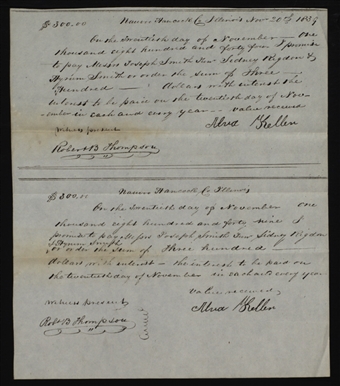 $300.00 Nauvoo Hancock Co Illinois Nov 20th 1839
On the Twentieth day of November One
thousand eight hundred and forty four I promise
to pay Messrs Joseph Smith Junr Sidney Rigdon &
Hyrum Smith or order the sum of Three
hundred dollars with interest the
interest to be paid on the twentieth day of Nove
mber in each and every year value received
witness present
Robert B Thompson
$300.00 Nauvoo Hancock Co Illinois
On the Twentieth day of November One
thousand eight hundred and forty nine I
promise to pay Joseph Smith Junr Sidney Rigdon
& Hyrum Smith
or order the sum of Three hundred
dollars with interest the interest to be paid on
the twentieth day of November in each & every year
value received
witness present
Robt B Thompson